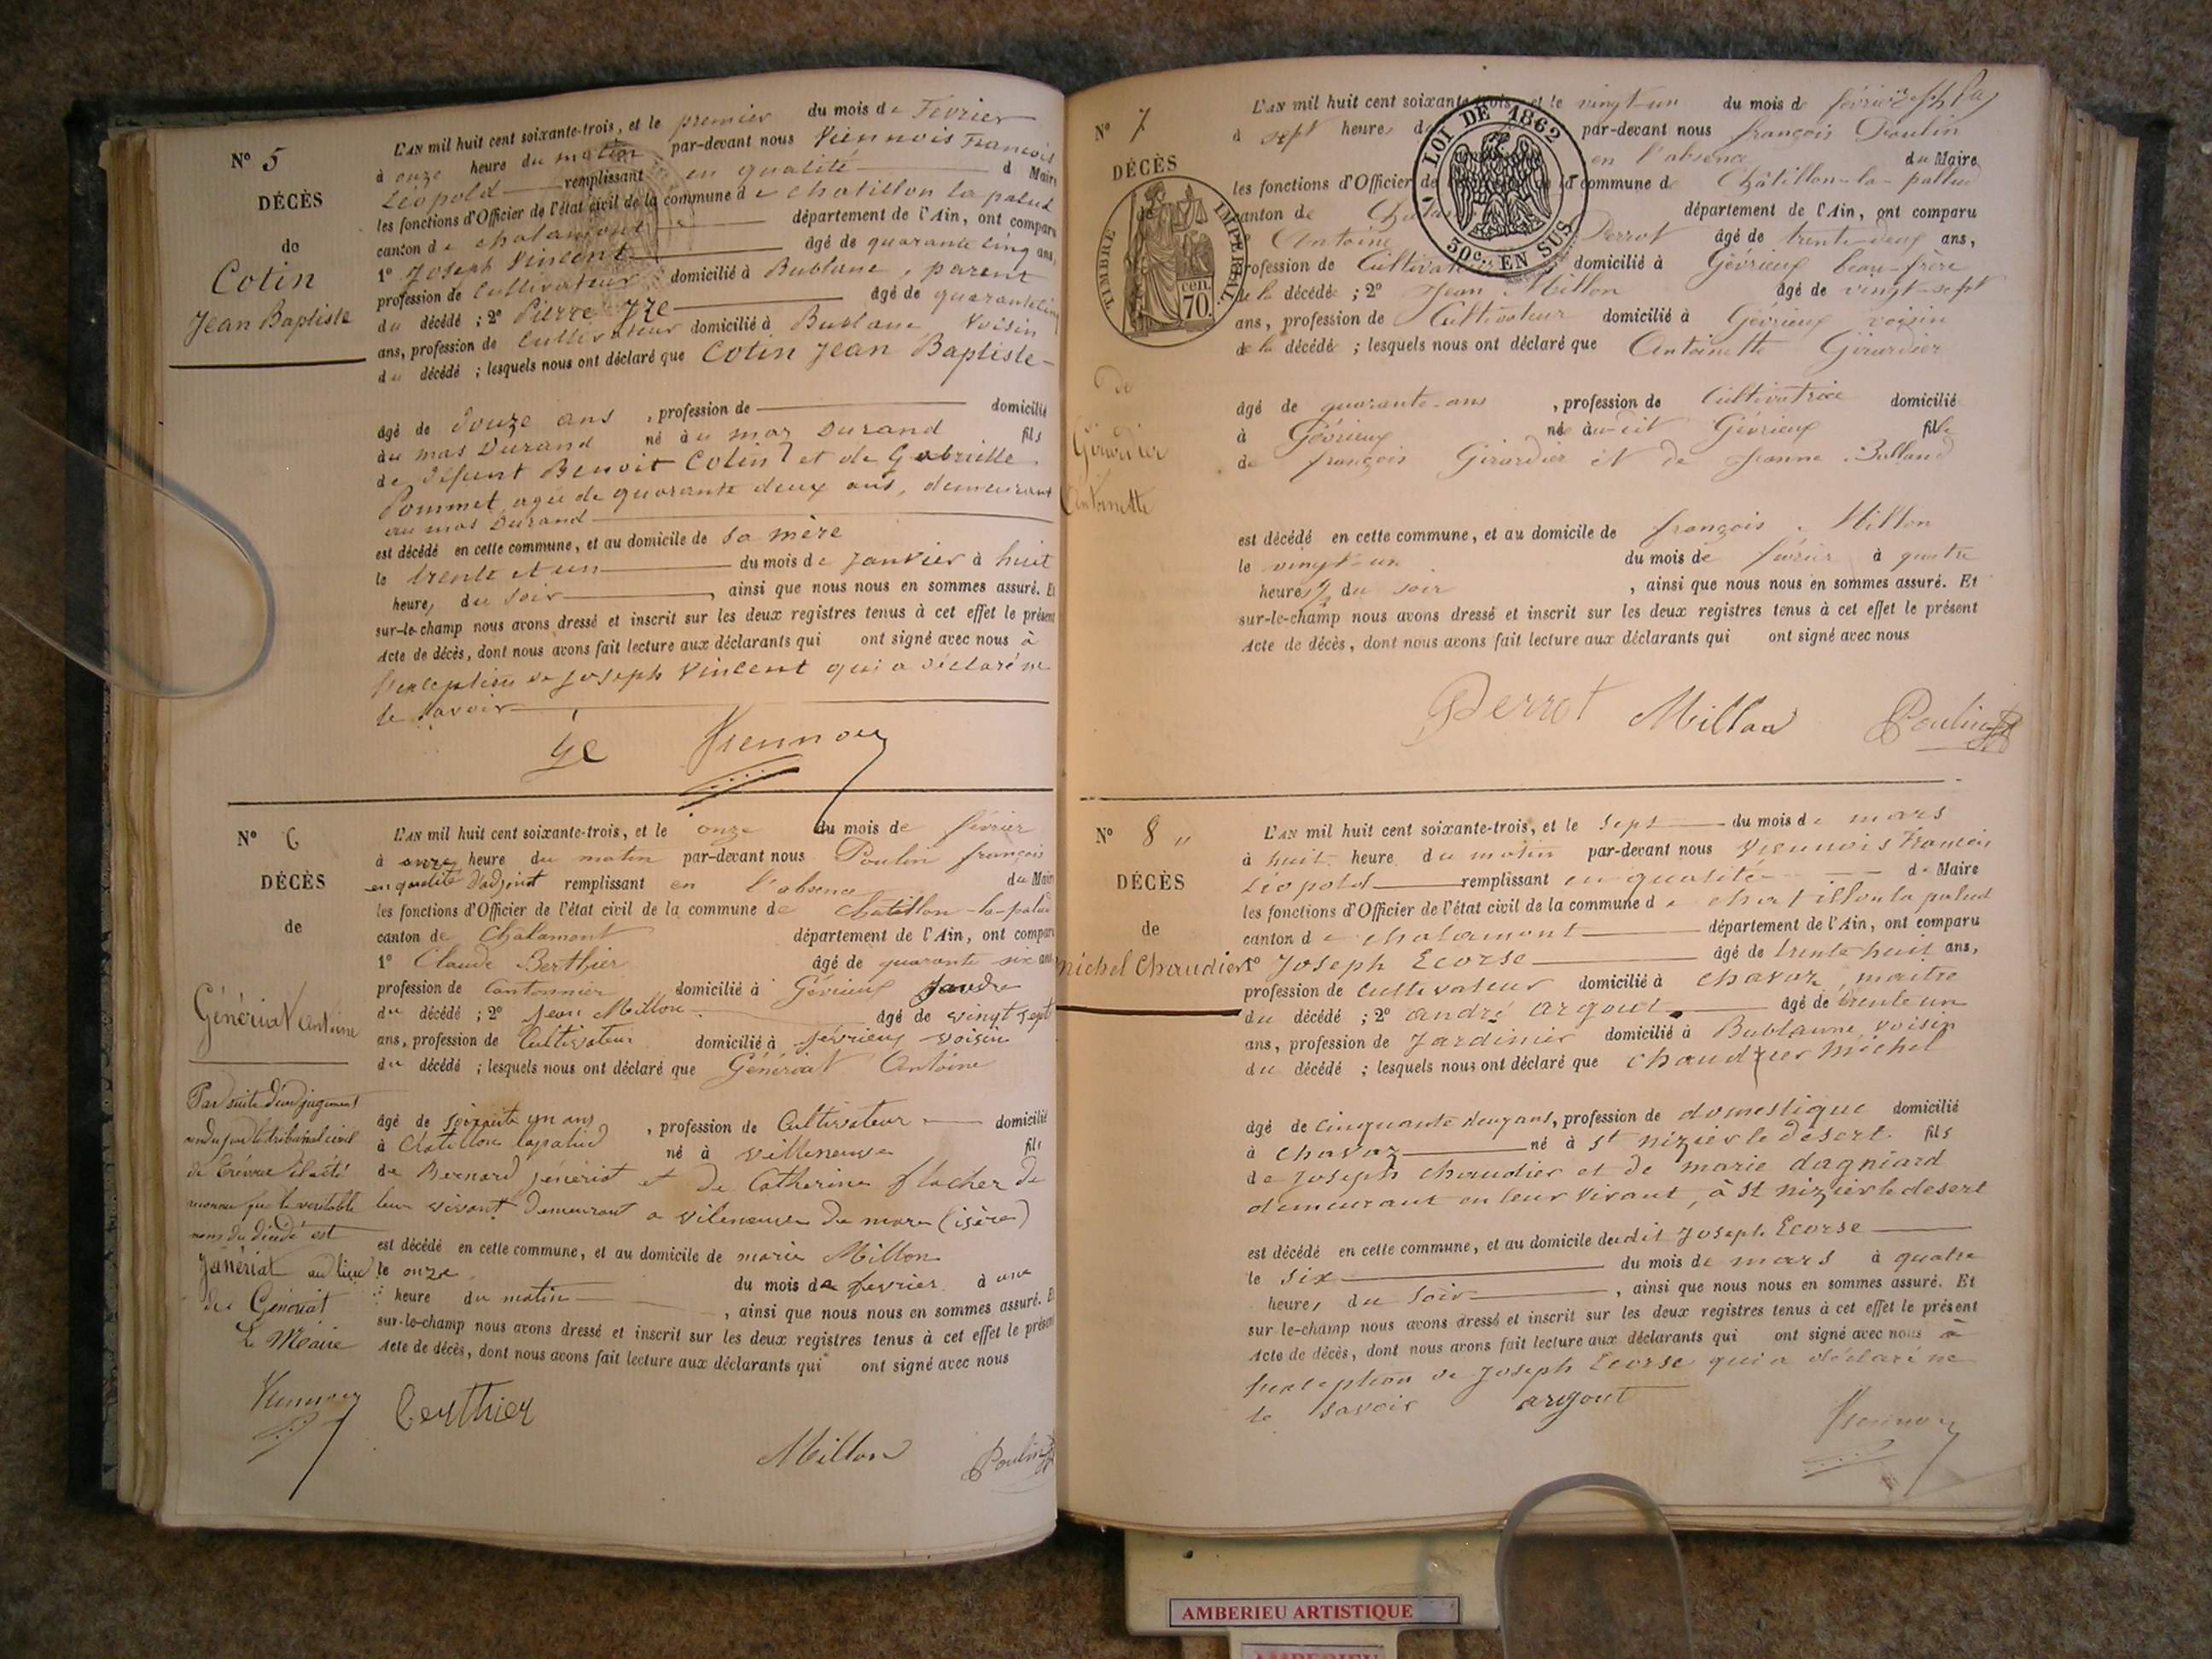 N° 5
DÉCÈS
de
Cotin
Jean Baptiste
L'AN mil huit cent soixante-trois, et le premier du mois de Février
à onze heure du matin par-devant nous Viennois François
Léopold remplissant en qualité de Maire
les fonctions d'Officier de l'état civil de la commune de Chatillon la palud
canton de chalamont département de l'Ain, ont comparu
1° Joseph Vincent âgé de quarante cinq ans,
profession de Cultivateur domicilié à Bublane, parent
du décédé ; 2° Pierre Yze âgé de quarante cinq
ans, profession de Cultivateur domicilié à Bublane Voisin
du décédé ; lesquels nous ont déclaré que Cotin Jean Baptiste
âgé de Douze ans, profession de domicilié
au mas Durand né au mas Durand fils
de défunt Benoit Cotin et de Gabrielle
Pommet agée de quarante deux ans, demeurant
au mas Durand
est décédé en cette commune, et au domicile de sa mère
le trente et un du mois de Janvier à huit
heures du soir, ainsi que nous nous en sommes assuré. Et
sur-le-champ nous avons dressé et inscrit sur les deux registres tenus à cet effet le présent
Acte de décès, dont nous avons fait lecture aux déclarants qui ont signé avec nous à
l'exception de Joseph Vincent qui a déclaré ne
le savoir
Viennois
N° 6
DÉCÈS
de
Génériat Antoine
Par suite d'un jugement
rendu par le tribunal civil
de Trévoux il a été
reconnu que le veritable
nom du décédé est
Janériat au lieu
de Génériat
Le Maire
Viennois
L'AN mil huit cent soixante-trois, et le onze du mois de février
à onze heure du matin par-devant nous Poulin françois
en qualité d'adjoint remplissant en l'absence du Maire
les fonctions d'Officier de l'état civil de la commune de Chatillon-la-palud
canton de Chalamont département de l'Ain, ont comparu
1° Claude Berthier âgé de quarante six ans
profession de Cantonnier domicilié à Gévrieux gendre
du décédé ; 2° Jean Millon âgé de vingt sept
ans, profession de Cultivateur domicilié à Gévrieux voisin
du décédé ; lesquels nous ont déclaré que Génériat Antoine
âgé de soixante un ans, profession de Cultivateur domicilié
à Chatillon lapalud né à villeneuve fils
de Bernard Jénériat et de Catherine flacher de
leur vivant demeurant a vileneuve de marc (isère)
est décédé en cette commune, et au domicile de marie Millon
le onze du mois de fevrier à une
heure du matin, ainsi que nous nous en sommes assuré. Et
sur-le-champ nous avons dressé et inscrit sur les deux registres tenus à cet effet le présent
Acte de décès, dont nous avons fait lecture aux déclarants qui ont signé avec nous
Berthier
Millon Poulin
N° 7
DÉCÈS
TIMBRE IMPÉRIAL
70 cen.
de
Girardier
Antoinette
LOI DE 1862
50c. EN SUS
L'AN mil huit cent soixante-trois, et le vingt-un du mois de février
à sept heures du par-devant nous françois Poulin
en l'absence du Maire
les fonctions d'Officier de la commune de Châtillon-la-pallud
canton de département de l'Ain, ont comparu
Antoine Perrot âgé de trente-deux ans,
profession de Cultivateur domicilié à Gévrieux beau-frère
de la décédée ; 2° Jean Millon âgé de vingt-sept
ans, profession de Cultivateur domicilié à Gévrieux voisin
de la décédée ; lesquels nous ont déclaré que Antoinette Girardier
âgé de quarante-ans, profession de Cultivatrice domicilié
à Gévrieux née audit Gévrieux fille
de françois Girardier et de Jeanne Balland
est décédé en cette commune, et au domicile de françois Millon
le vingt-un du mois de février à quatre
heures ½ du soir, ainsi que nous nous en sommes assuré. Et
sur-le-champ nous avons dressé et inscrit sur les deux registres tenus à cet effet le présent
Acte de décès, dont nous avons fait lecture aux déclarants qui ont signé avec nous
Perrot Millon Poulin
N° 8
DÉCÈS
de
michel Chaudier
L'AN mil huit cent soixante-trois, et le sept du mois de mars
à huit heure du matin par-devant nous Viennois François
Léopold remplissant en qualité de Maire
les fonctions d'Officier de l'état civil de la commune de chatillon la palud
canton de chalamont département de l'Ain, ont comparu
1° Joseph Ecorse âgé de trente huit ans,
profession de Cultivateur domicilié à chavaz, maitre
du décédé ; 2° andré argout âgé de trente un
ans, profession de Jardinier domicilié à Bublanne, voisin
du décédé ; lesquels nous ont déclaré que chaudier michel
âgé de cinquante deux ans, profession de domestique domicilié
à chavaz né à St nizier le desert fils
de Joseph chaudier et de marie dagniard
demeurant en leur vivant, à St nizier le desert
est décédé en cette commune, et au domicile du dit Joseph Ecorse
le six du mois de mars à quatre
heures du soir, ainsi que nous nous en sommes assuré. Et
sur-le-champ nous avons dressé et inscrit sur les deux registres tenus à cet effet le présent
Acte de décès, dont nous avons fait lecture aux déclarants qui ont signé avec nous à
l'exception de Joseph Ecorse qui a déclaré ne
le savoir argout Viennois
AMBERIEU ARTISTIQUE
AMBERIEU